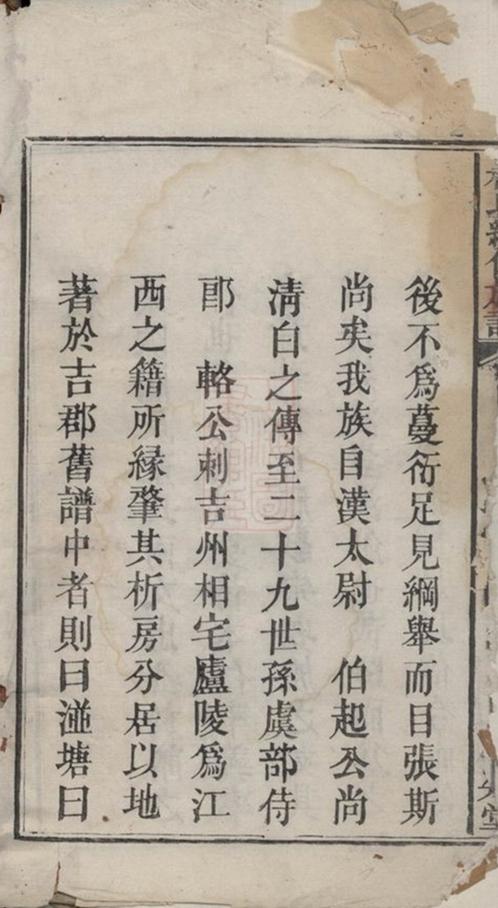 後不爲蔓衍足見綱舉而目張斯
尚矣我族自漢太尉　伯起公尚
清白之傳至二十九世孫虞部侍
郎　輅公刺吉州相宅廬陵爲江
西之籍所縁肇其析房分居以地
著於吉郡舊譜中者則曰湴塘曰